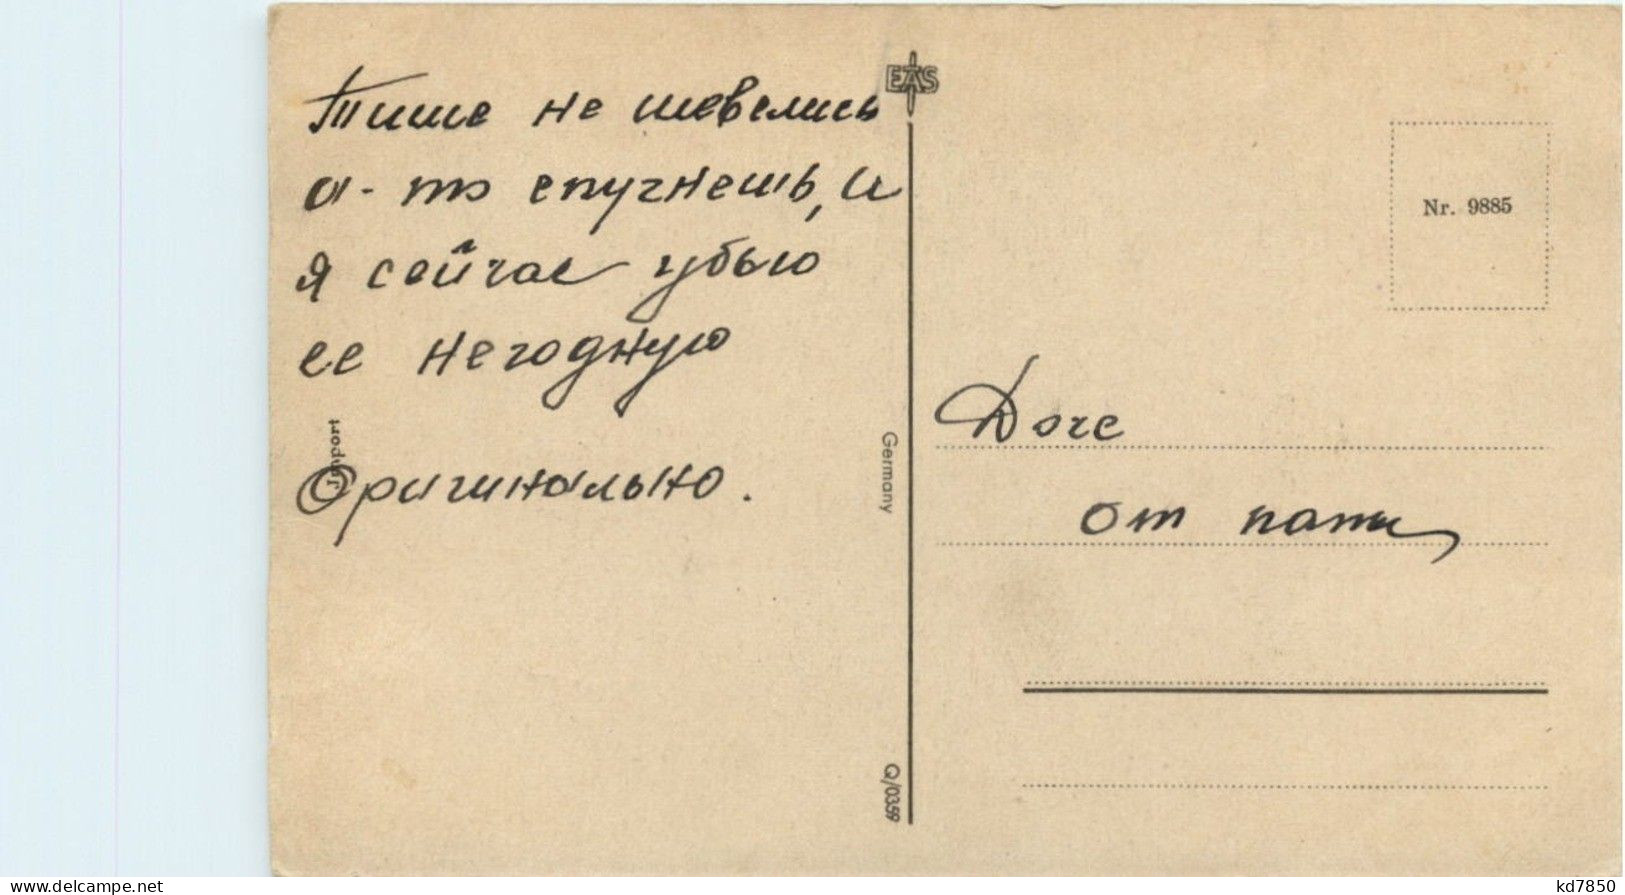 Тише не шевелись
а-то спугнешь, и
я сейчас убью
ее негодную
Оригинально.
Import
EAS
Germany
Q/0359
Nr. 9885
Доче
от папы
www.delcampe.net
kd7850